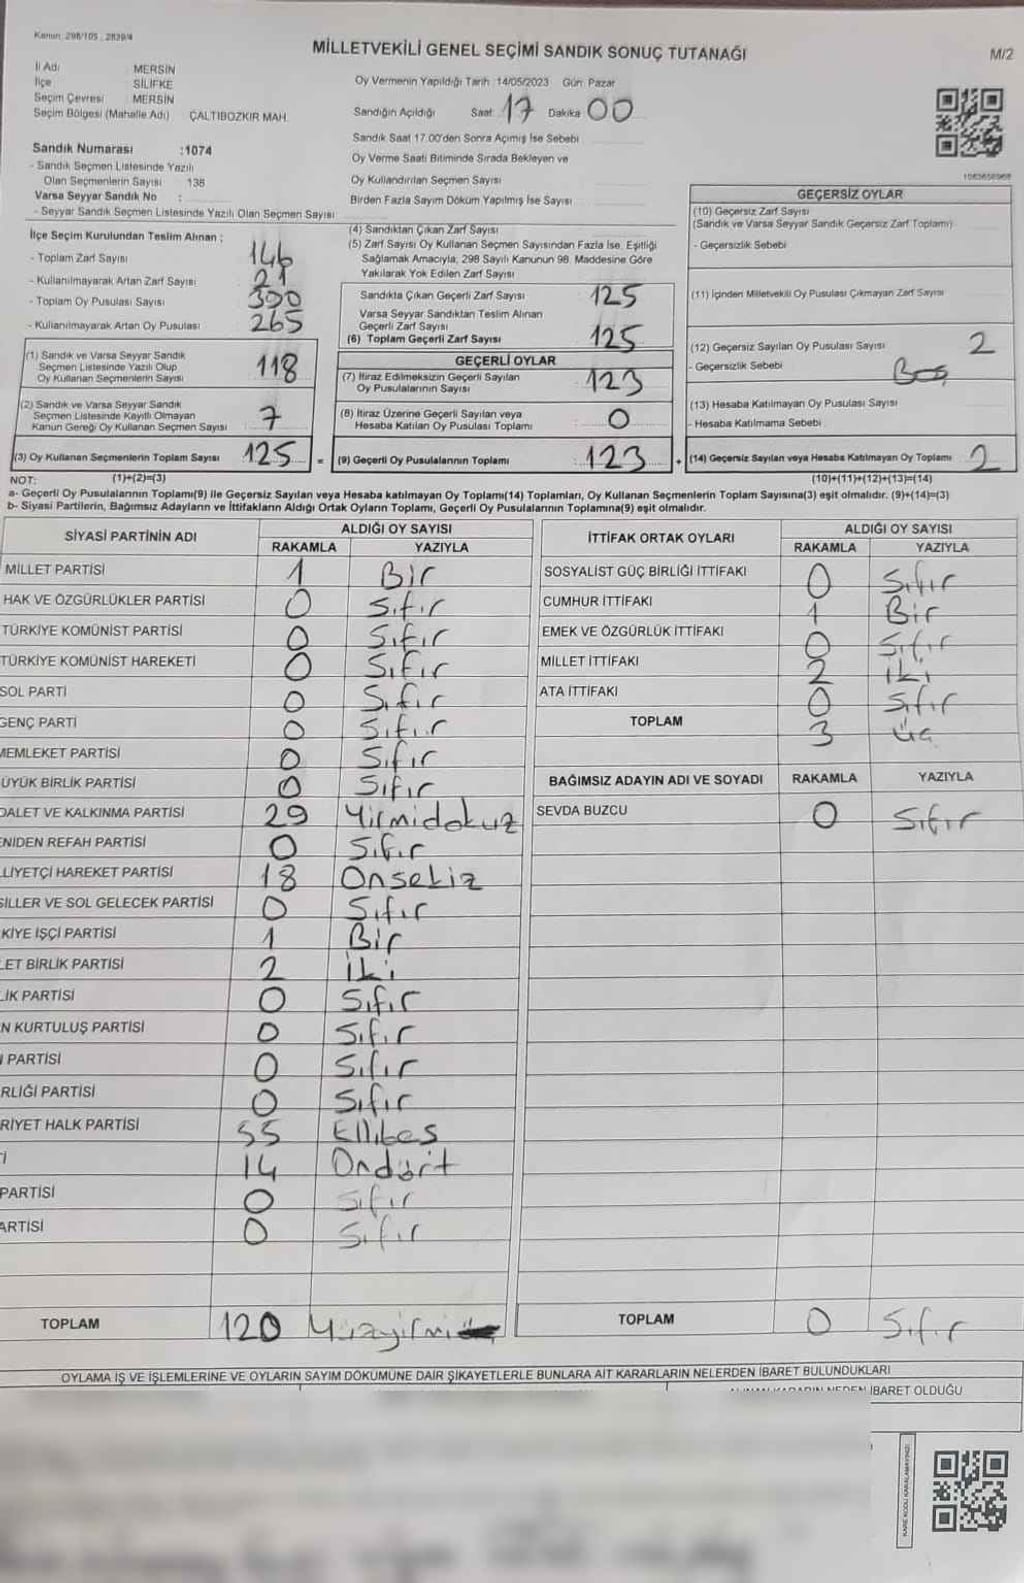 Kanun 298/105, 2839/4
MİLLETVEKİLİ GENEL SEÇİMİ SANDIK SONUÇ TUTANAĞI
M/2
İl Adı MERSİN
İlçe SİLİFKE
Seçim Çevresi MERSİN
Seçim Bölgesi (Mahalle Adı) ÇALTIBOZKIR MAH.
Oy Vermenin Yapıldığı Tarih :14/05/2023 Gün: Pazar
Sandığın Açıldığı Saat 17 Dakika 00
Sandık Saat 17.00'den Sonra Açımış İse Sebebi
Oy Verme Saati Bitiminde Sırada Bekleyen ve
Oy Kullandırılan Seçmen Sayısı
Birden Fazla Sayım Döküm Yapılmış İse Sayısı
Sandık Numarası :1074
- Sandık Seçmen Listesinde Yazılı
Olan Seçmenlerin Sayısı 136
Varsa Seyyar Sandık No :
- Seyyar Sandık Seçmen Listesinde Yazılı Olan Seçmen Sayısı
İlçe Seçim Kurulundan Teslim Alınan :
- Toplam Zarf Sayısı 146
- Kullanılmayarak Artan Zarf Sayısı 21
- Toplam Oy Pusulası Sayısı 390
- Kullanılmayarak Artan Oy Pusulası 265
(1) Sandık ve Varsa Seyyar Sandık
Seçmen Listesinde Yazılı Olup
Oy Kullanan Seçmenlerin Sayısı 118
(2) Sandık ve Varsa Seyyar Sandık
Seçmen Listesinde Kayıtlı Olmayan
Kanun Gereği Oy Kullanan Seçmen Sayısı 7
(3) Oy Kullanan Seçmenlerin Toplam Sayısı 125 =
(4) Sandıktan Çıkan Zarf Sayısı
(5) Zarf Sayısı Oy Kullanan Seçmen Sayısından Fazla İse, Eşitliği
Sağlamak Amacıyla, 298 Sayılı Kanunun 98. Maddesine Göre
Yakılarak Yok Edilen Zarf Sayısı
Sandıkta Çıkan Geçerli Zarf Sayısı 125
Varsa Seyyar Sandıktan Teslim Alınan
Geçerli Zarf Sayısı
(6) Toplam Geçerli Zarf Sayısı 125
GEÇERLİ OYLAR
(7) İtiraz Edilmeksizin Geçerli Sayılan
Oy Pusulalarının Sayısı 123
(8) İtiraz Üzerine Geçerli Sayılan veya
Hesaba Katılan Oy Pusulası Toplamı 0
(9) Geçerli Oy Pusulalarının Toplamı 123 +
GEÇERSİZ OYLAR
(10) Geçersiz Zarf Sayısı
(Sandık ve Varsa Seyyar Sandık Geçersiz Zarf Toplamı)
- Geçersizlik Sebebi
(11) İçinden Milletvekili Oy Pusulası Çıkmayan Zarf Sayısı
(12) Geçersiz Sayılan Oy Pusulası Sayısı 2
- Geçersizlik Sebebi Boş
(13) Hesaba Katılmayan Oy Pusulası Sayısı
- Hesaba Katılmama Sebebi
(14) Geçersiz Sayılan veya Hesaba Katılmayan Oy Toplamı 2
NOT: (1)+(2)=(3) (10)+(11)+(12)+(13)=(14)
a- Geçerli Oy Pusulalarının Toplamı(9) ile Geçersiz Sayılan veya Hesaba katılmayan Oy Toplamı(14) Toplamları, Oy Kullanan Seçmenlerin Toplam Sayısına(3) eşit olmalıdır. (9)+(14)=(3)
b- Siyasi Partilerin, Bağımsız Adayların ve İttifakların Aldığı Ortak Oyların Toplamı, Geçerli Oy Pusulalarının Toplamına(9) eşit olmalıdır.
SİYASİ PARTİNİN ADI ALDIĞI OY SAYISI
RAKAMLA YAZIYLA
MİLLET PARTİSİ 1 Bir
HAK VE ÖZGÜRLÜKLER PARTİSİ 0 Sıfır
TÜRKİYE KOMÜNİST PARTİSİ 0 Sıfır
TÜRKİYE KOMÜNİST HAREKETİ 0 Sıfır
SOL PARTİ 0 Sıfır
GENÇ PARTİ 0 Sıfır
MEMLEKET PARTİSİ 0 Sıfır
ÜYÜK BİRLİK PARTİSİ 0 Sıfır
DALET VE KALKINMA PARTİSİ 29 Yirmidokuz
ENİDEN REFAH PARTİSİ 0 Sıfır
LLİYETÇİ HAREKET PARTİSİ 18 Onsekiz
ŞİLLER VE SOL GELECEK PARTİSİ 0 Sıfır
KİYE İŞÇİ PARTİSİ 1 Bir
LET BİRLİK PARTİSİ 2 İki
LİK PARTİSİ 0 Sıfır
N KURTULUŞ PARTİSİ 0 Sıfır
PARTİSİ 0 Sıfır
RLİĞİ PARTİSİ 0 Sıfır
RİYET HALK PARTİSİ 55 Ellibeş
İ 14 Ondört
PARTİSİ 0 Sıfır
ARTİSİ 0 Sıfır
TOPLAM 120 Yüzyirmi
İTTİFAK ORTAK OYLARI ALDIĞI OY SAYISI
RAKAMLA YAZIYLA
SOSYALİST GÜÇ BİRLİĞİ İTTİFAKI 0 Sıfır
CUMHUR İTTİFAKI 1 Bir
EMEK VE ÖZGÜRLÜK İTTİFAKI 0 Sıfır
MİLLET İTTİFAKI 2 İki
ATA İTTİFAKI 0 Sıfır
TOPLAM 3 Üç
BAĞIMSIZ ADAYIN ADI VE SOYADI RAKAMLA YAZIYLA
SEVDA BUZCU 0 Sıfır
TOPLAM 0 Sıfır
OYLAMA İŞ VE İŞLEMLERİNE VE OYLARIN SAYIM DÖKÜMÜNE DAİR ŞİKAYETLERLE BUNLARA AİT KARARLARIN NELERDEN İBARET BULUNDUKLARI
İBARET OLDUĞU
KARE KODU KARALAMAYINIZ!